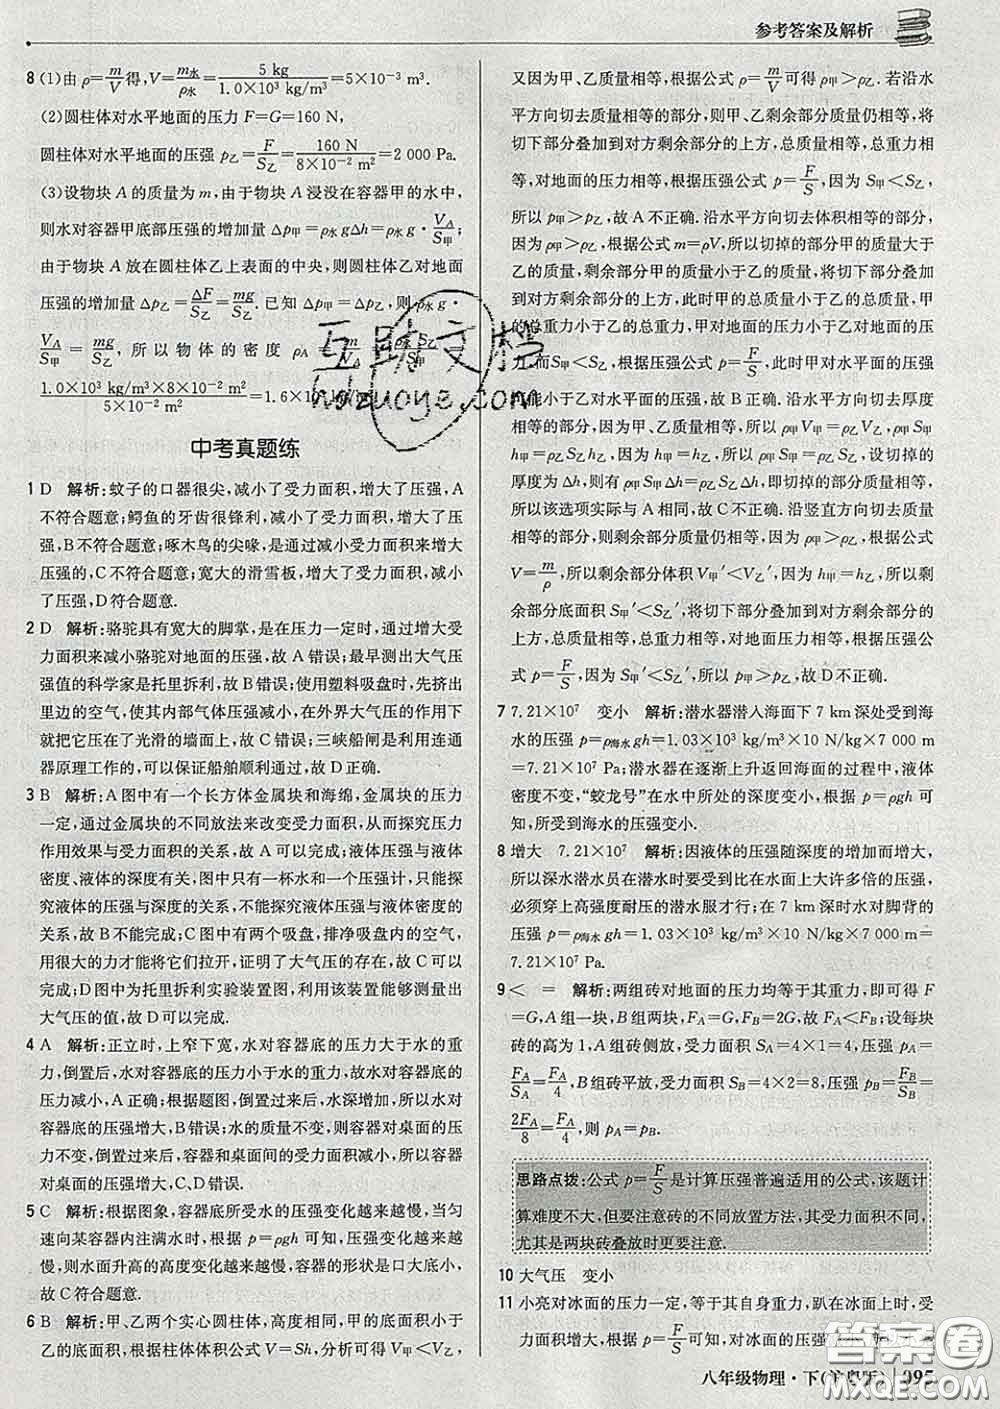 参考答案及解析
8 (1)由 ρ=m/V得,V=m水/ρ水=5 kg/1.0×10³ kg/m³=5×10⁻³ m³.
(2)圆柱体对水平地面的压力 F=G=160 N,
圆柱体对水平地面的压强 p乙=F/S乙=160 N/8×10⁻² m²=2 000 Pa.
(3)设物块 A 的质量为 m,由于物块 A 浸没在容器甲的水中,
则水对容器甲底部压强的增加量 Δp甲=ρ水 gΔh=ρ水 g·V_A/S甲;
由于物块 A 放在圆柱体乙上表面的中央,则圆柱体乙对地面
压强的增加量 Δp乙=ΔF/S乙=mg/S乙.已知 Δp甲=Δp乙,则 ρ水 g·
V_A/S甲=mg/S乙,所以物体的密度 ρ_A=
1.0×10³ kg/m³×8×10⁻² m²/5×10⁻² m²=1.6×10
中考真题练
1 D 解析:蚊子的口器很尖,减小了受力面积,增大了压强,A
不符合题意;鳄鱼的牙齿很锋利,减小了受力面积,增大了压
强,B不符合题意;啄木鸟的尖喙,是通过减小受力面积来增大
压强的,C不符合题意;宽大的滑雪板,增大了受力面积,减小
了压强,D符合题意.
2 D 解析:骆驼具有宽大的脚掌,是在压力一定时,通过增大受
力面积来减小骆驼对地面的压强,故 A 错误;最早测出大气压
强值的科学家是托里拆利,故 B 错误;使用塑料吸盘时,先挤出
里边的空气,使其内部气体压强减小,在外界大气压的作用下
就把它压在了光滑的墙面上,故 C 错误;三峡船闸是利用连通
器原理工作的,可以保证船舶顺利通过,故 D 正确.
3 B 解析:A图中有一个长方体金属块和海绵,金属块的压力
一定,通过金属块的不同放法来改变受力面积,从而探究压力
作用效果与受力面积的关系,故 A 可以完成;液体压强与液体
密度、液体的深度有关,B图中只有一杯水和一个压强计,只能
探究液体的压强与深度的关系,不能探究液体压强与液体密度
的关系,故 B 不能完成;C图中有两个吸盘,排净吸盘内的空气,
用很大的力才能将它们拉开,证明了大气压的存在,故 C 可以
完成;D 图中为托里拆利实验装置图,利用该图能够测量出
大气压的值,故 D 可以完成.
4 A 解析:正立时,上窄下宽,水对容器底的压力大于水的重
力,倒立时,水对容器底的压力小于水的重力,故水对容器底的
压力减小,A 正确;根据题图,倒立过来后,水深增加,所以水对
容器底的压强增大,B错误;水的质量不变,则容器对桌面的压
力不变,倒立过来后,容器和桌面间的受力面积减小,所以容器
对桌面的压强增大,C、D错误.
5 C 解析:根据图象,容器底所受水的压强变化越来越慢,当匀
速向某容器内注满水时,根据 p=ρgh 可知,压强变化越来越
慢,则水面升高的高度变化越来越慢,容器的形状是口大底小,
故 C 符合题意.
6 B 解析:甲、乙两个实心圆柱体,高度相同,甲的底面积小于
乙的底面积,根据柱体体积公式 V=Sh,分析可得 V甲<V乙,
又因为甲、乙质量相等,根据公式 ρ=m/V可得 ρ甲>ρ乙.若沿水
平方向切去质量相等的部分,则甲、乙剩余部分质量仍相等,将
切下部分叠加到对方剩余部分的上方,总质量相等,总重力相
等,对地面的压力相等,根据压强公式 p=F/S,因为 S甲<S乙,
所以 p甲>p乙,故 A 不正确.沿水平方向切去体积相等的部分,
因为 ρ甲>ρ乙,根据公式 m=ρV,所以切掉的部分甲的质量大于
乙的质量,剩余部分甲的质量小于乙的质量,将切下部分叠加到
对方剩余部分的上方,此时甲的总质量小于乙的总质量,甲
的总重力小于乙的总重力,甲对地面的压力小于乙对地面的压
力,而S甲<S乙,根据压强公式 p=F/S,此时甲对水平面的压强
可能小于乙对水平面的压强,故 B 正确.沿水平方向切去厚度
相等的部分,因为甲、乙质量相等,所以 ρ甲V甲=ρ乙V乙,ρ甲S甲
h甲=ρ乙S乙h乙,因为 h甲=h乙,所以 ρ甲S甲=ρ乙S乙,设切掉的
厚度为 Δh,则有 ρ甲S甲Δh=ρ乙S乙Δh,即切掉的质量相等,
所以该选项实际与 A 相同,故 C 不正确.沿竖直方向切去质量
相等的部分,则剩余部分质量仍相等,因为 ρ甲>ρ乙,根据公式
V=m/ρ,所以剩余部分体积 V甲′<V乙′,因为 h甲=h乙,所以剩
余部分底面积 S甲′<S乙′,将切下部分叠加到对方剩余部分的
上方,总质量相等,总重力相等,对地面压力相等,根据压强公
式 p=F/S,因为 S甲′<S乙′,所以 p甲>p乙,故 D 不正确.
7 7.21×10⁷ 变小 解析:潜水器潜入海面下 7 km 深处受到海
水的压强 p=ρ海水gh=1.03×10³ kg/m³×10 N/kg×7 000 m
=7.21×10⁷ Pa;潜水器在逐渐上升返回海面的过程中,液体
密度不变,“蛟龙号”在水中所处的深度变小,根据 p=ρgh 可
知,所受到海水的压强变小.
8 增大 7.21×10⁷ 解析:因液体的压强随深度的增加而增大,
所以深水潜水员在潜水时要受到比在水面上大许多倍的压强,
必须穿上高强度耐压的潜水服才行;在 7 km 深时水对脚背的
压强 p=ρ海水gh=1.03×10³ kg/m³×10 N/kg×7 000 m=
7.21×10⁷ Pa.
9 < = 解析:两组砖对地面的压力均等于其重力,即可得 F
=G,A 组一块,B 组两块,F_A=G,F_B=2G,故 F_A<F_B;设每块
砖的高为 1,A 组砖侧放,受力面积 S_A=4×1=4,压强 p_A=
F_A/S_A=F_A/4,B组砖平放,受力面积 S_B=4×2=8,压强 p_B=F_B/S_B=
2F_A/8=F_A/4,则 p_A=p_B.
思路点拨:公式 p=F/S是计算压强普遍适用的公式,该题计
算难度不大,但要注意砖的不同放置方法,其受力面积不同,
尤其是两块砖叠放时更要注意.
10 大气压 变小
11 小亮对冰面的压力一定,等于其自身重力,趴在冰面上时,受
力面积增大,根据 p=F/S可知,对冰面的压强
八年级物理·下 095
互助文档
hdzuoye.com
答案圈
MXQE.COM